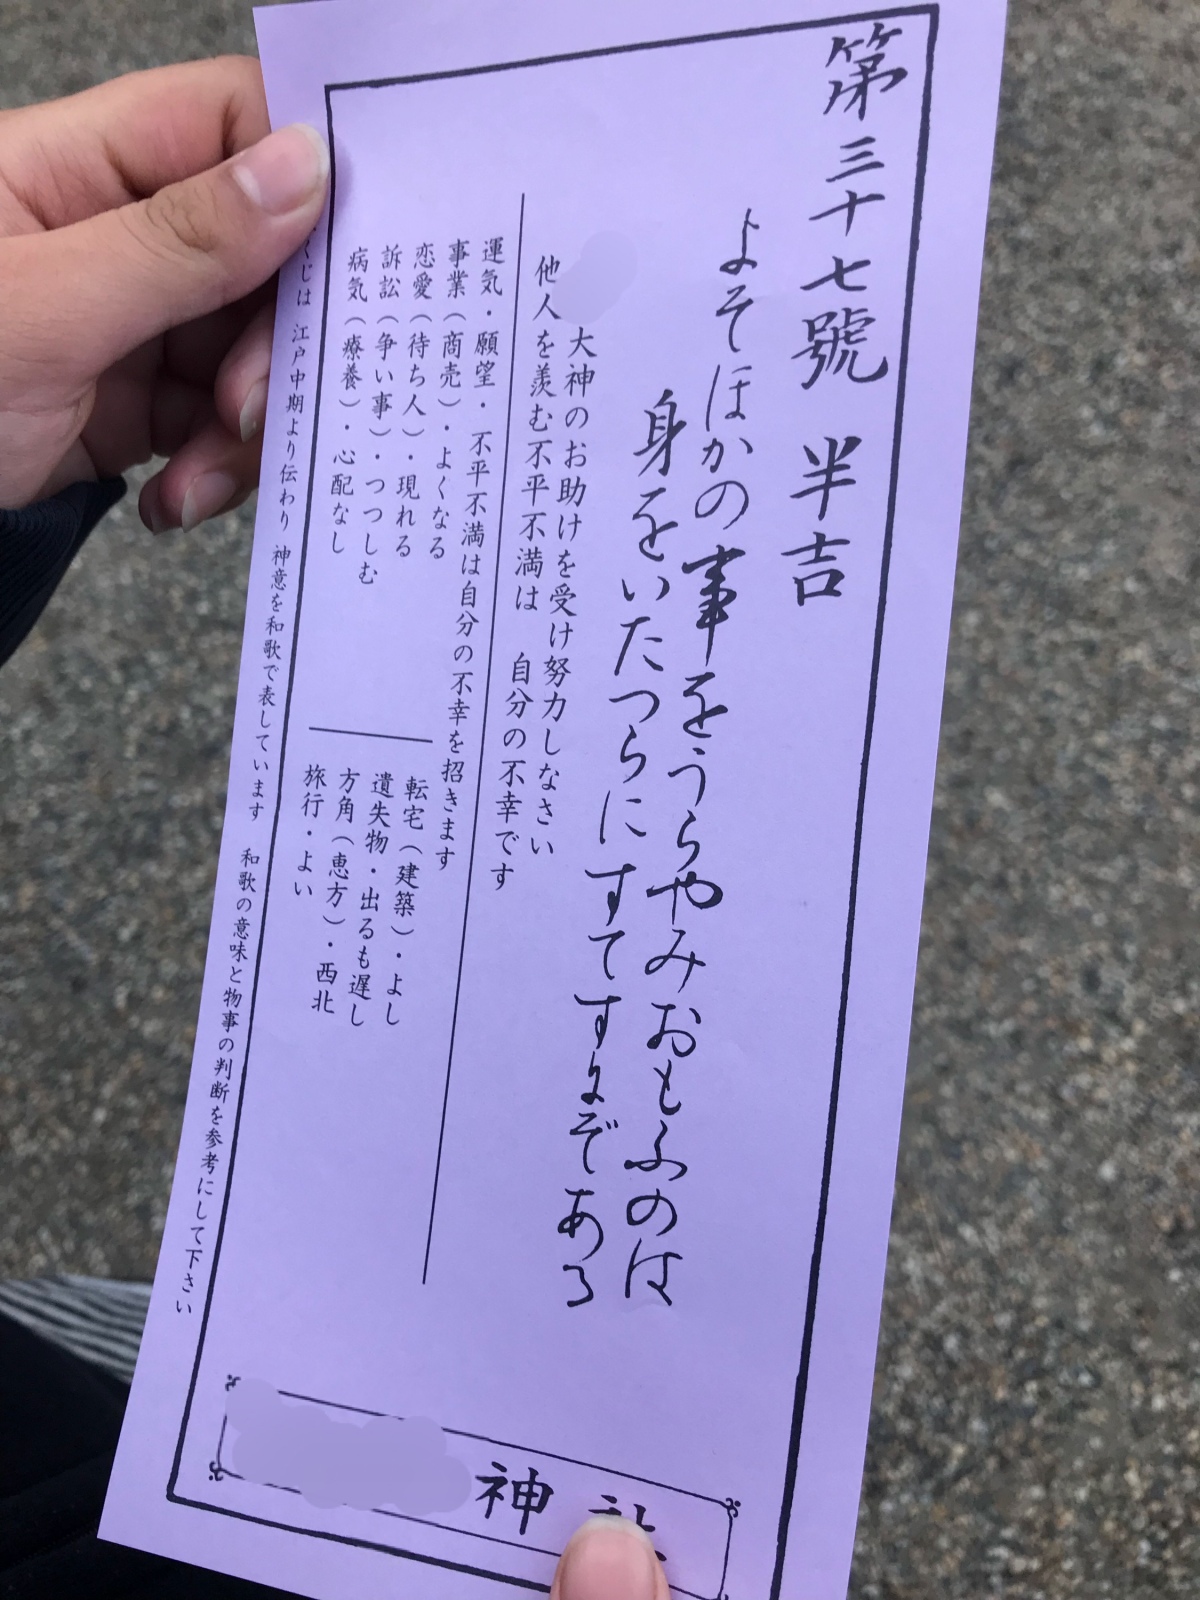 第三十七號 半吉
よそほかの事をうらやみおもふのは
身をいたつらにすてすまぞある
大神のお助けを受け努力しなさい
他人を羨む不平不満は 自分の不幸です
運気・願望・不平不満は自分の不幸を招きます
事業(商売)・よくなる
恋愛(待ち人)・現れる
訴訟(争い事)・つつしむ
病気(療養)・心配なし
転宅(建築)・よし
遺失物・出るも遅し
方角(恵方)・西北
旅行・よい
くじは 江戸中期より伝わり 神意を和歌で表しています 和歌の意味と物事の判断を参考にして下さい
神